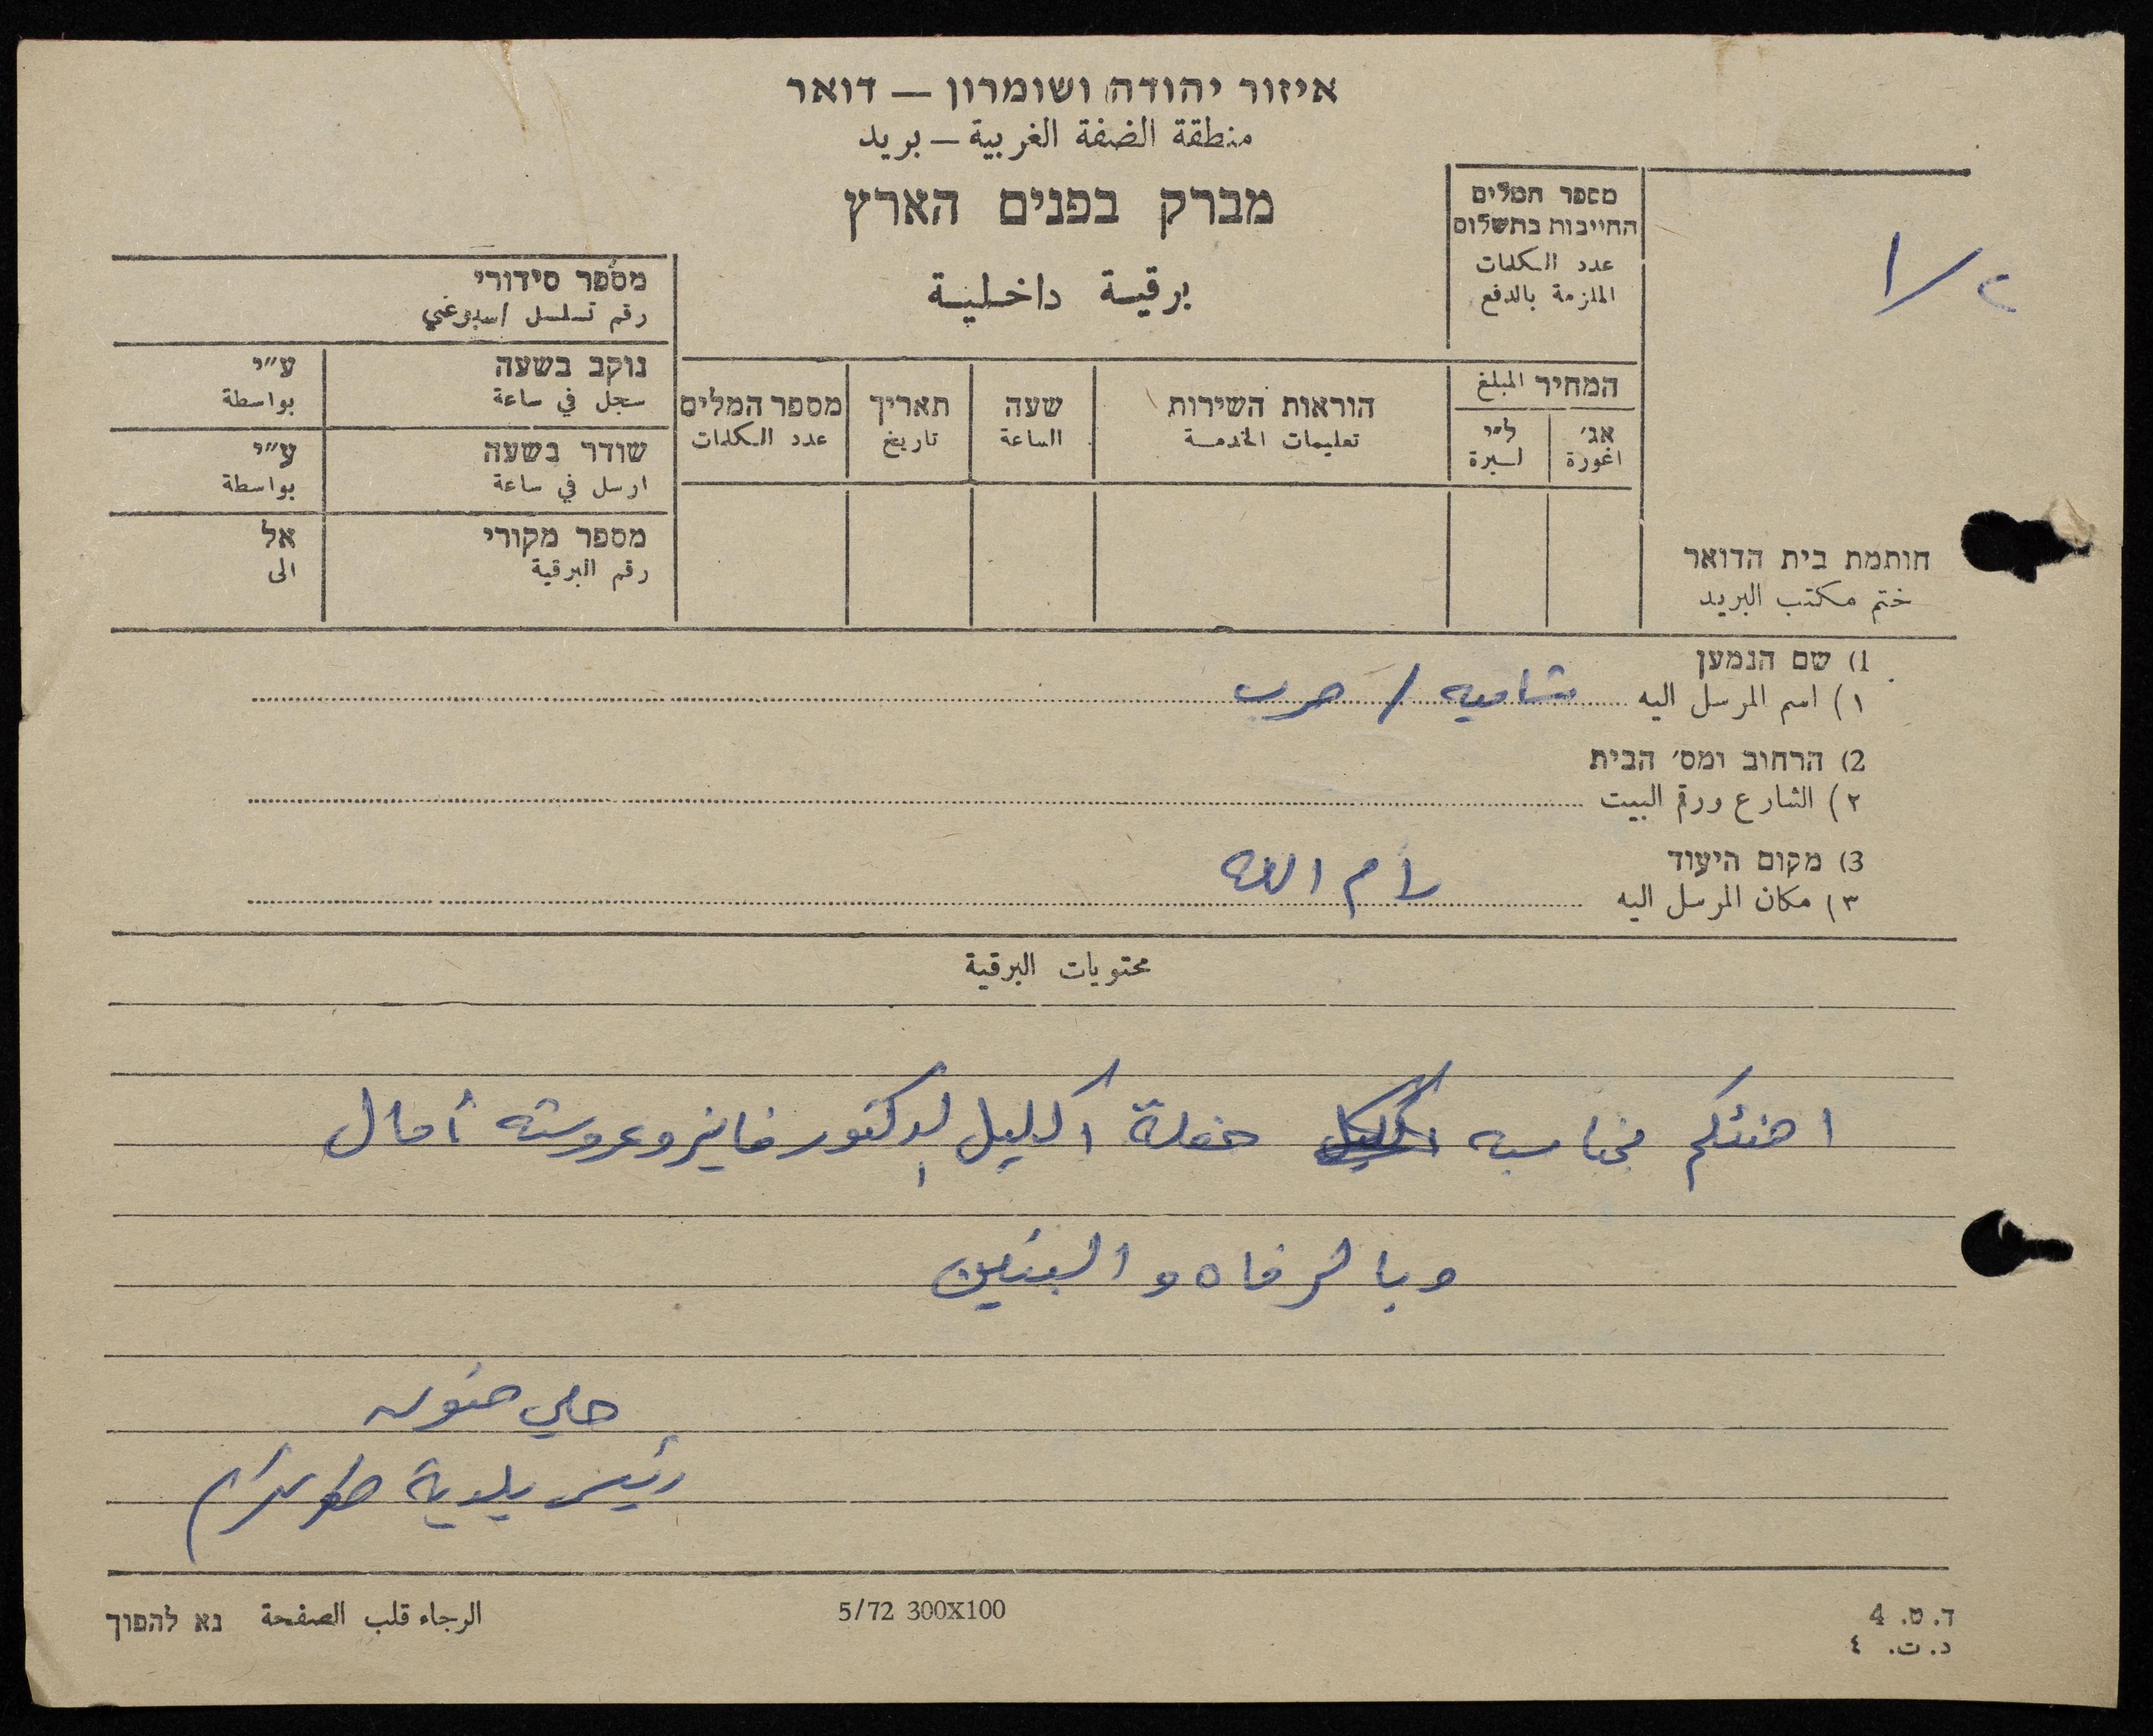 איזור יהודה ושומרון – דואר
منطقة الضفة الغربية – بريد
מברק בפנים הארץ
برقية داخلية
מספר המלים
החייבות בתשלום
عدد الكلمات
الملزمة بالدفع
המחיר المبلغ
אג׳ ל״י
اغورة ليرة
הוראות השירות
تعليمات الخدمة
שעה
الساعة
תאריך
تاريخ
מספר המלים
عدد الكلمات
מספר סידורי
رقم تسلسل
נוקב בשעה ע״י
سجل في ساعة بواسطة
שודר בשעה ע״י
ارسل في ساعة بواسطة
מספר מקורי אל
رقم البرقية الى
חותמת בית הדואר
ختم مكتب البريد
1) שם הנמען
١) اسم المرسل اليه شاميه / حرب
2) הרחוב ומס׳ הבית
٢) الشارع ورقم البيت
3) מקום היעוד
٣) مكان المرسل اليه رام الله
محتويات البرقية
اهنئكم بمناسبه اكليل حفلة اكليل الدكتور فايز وعروسته أمال
وبالرفاه والبنين
حلمي حنون
رئيس بلدية طولكرم
ד. ט. 4
د. ت. ٤
5/72 300X100
الرجاء قلب الصفحة נא להפוך